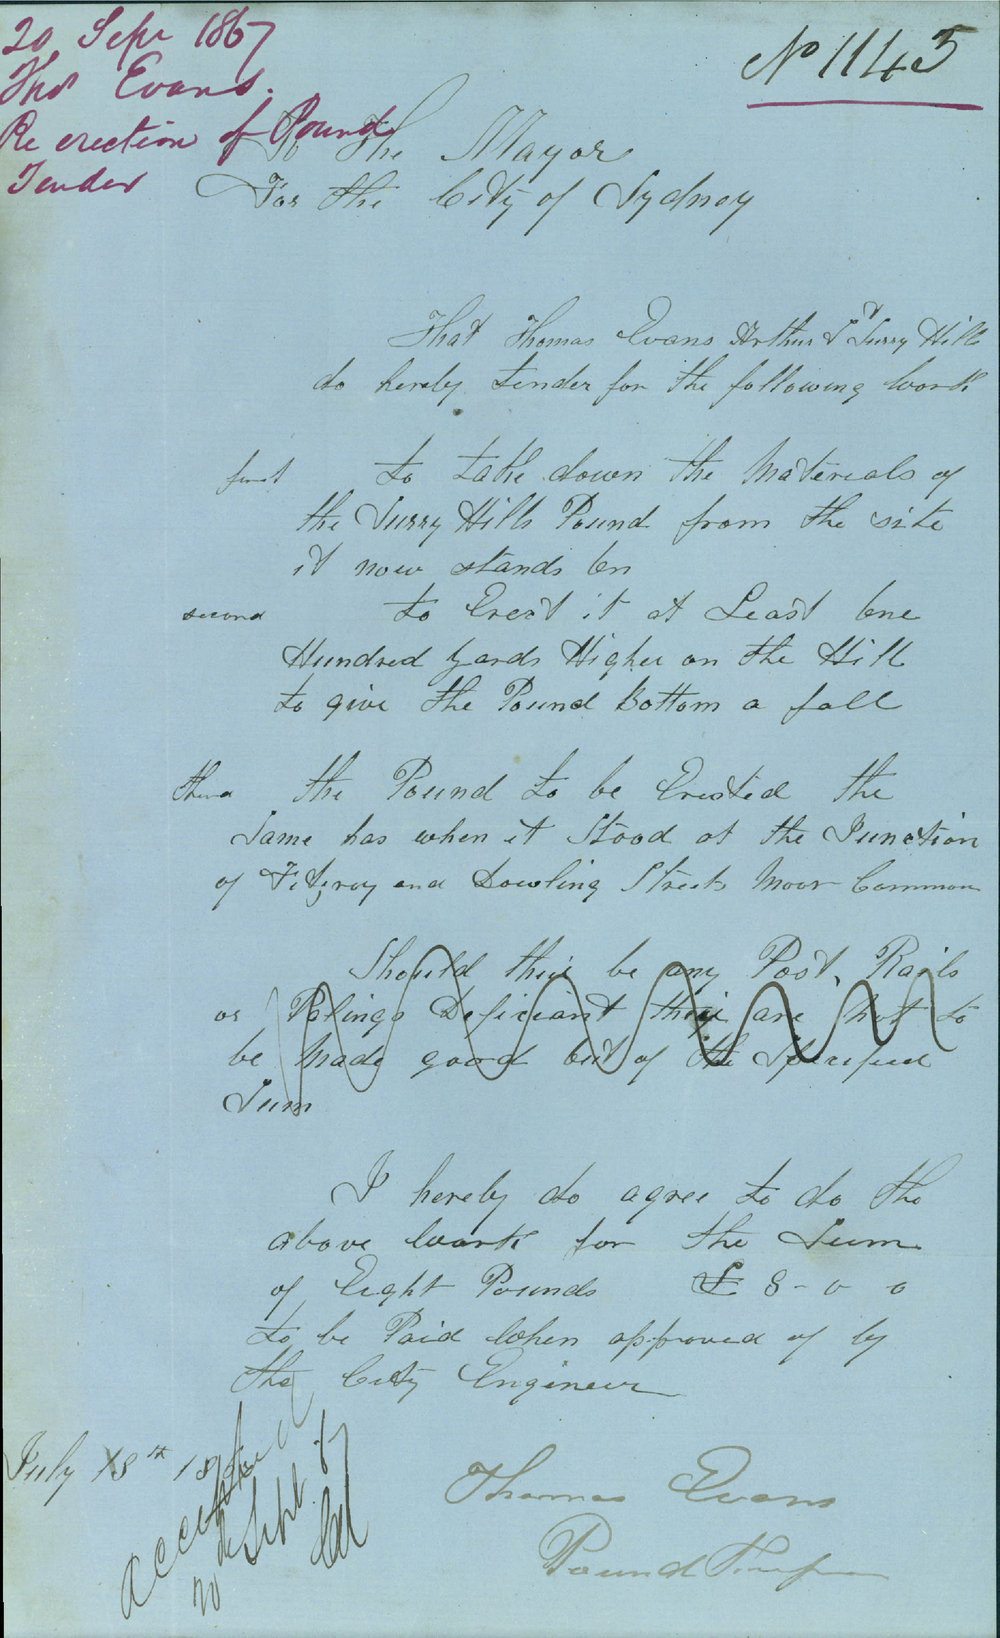 20 Sepr 1867
Thos Evans.
Re erection of Pound
Tender
No 1143
To The Mayor
For the City of Sydney
That Thomas Evans Arthur St Surry Hills
do hereby tender for the following Work
first to take down the Materials of
the Surry Hills Pound from the site
it now stands on
second to Erect it at Least one
Hundred yards Higher on the Hill
to give the Pound Bottom a fall
third the Pound to be Erected the
Same has when it Stood at the Junction
of Fitzroy and Dowling Streets Moor Common
Should their be any Post, Rails
or Palings Deficiant their are not to
be Made good out of the Specified
Sum
I hereby do agree to do the
above Work for the Sum
of Eight Pounds £ 8 - 0 0
to be Paid When approved of by
the City Engineer
July 18th 186
accepted
20 Sept 67
Thomas Evans
Pound Keeper